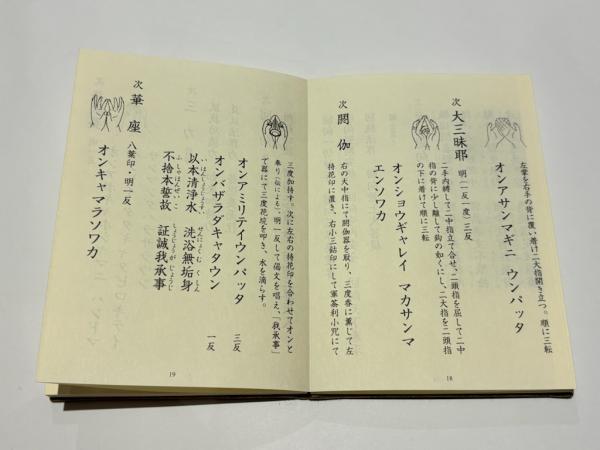 左掌を右手の背に覆い着け二大指開き立つ。順に三転
オンアサンマギニ ウンパッタ
次 大三昧耶 明(一反一度)三反
二手内縛して二中指立て合せ、二頭指を屈して二中
指の背に少し離して鈎の如くにし、二大指を二頭指
の下に着けて順に三転
オンショウギャレイ マカサンマ
エンソワカ
次 閼伽
右の大中指にて閼伽器を取り、三度香に薫じて左
持花印に置き、右小三鈷印にして軍荼利小咒にて
18
三度加持す。次に左右の持花印を合わせてオンと
奉り(伝による)、明一反して偈文を唱え、「我承事」
で器にて三度花校を叩き、水を滴らす。
オンアミリテイウンパッタ 三反
オンバザラダキャタウン 一反
以本清浄水 洗浴無垢身
いほんしょうじょうすい せんにょくむくしん
不捨本誓故 証誠我承事
ふしゃほんぜいこ しょうじょうがじょうじ
次 華座 八葉印・明一反
オンキャマラソワカ
19